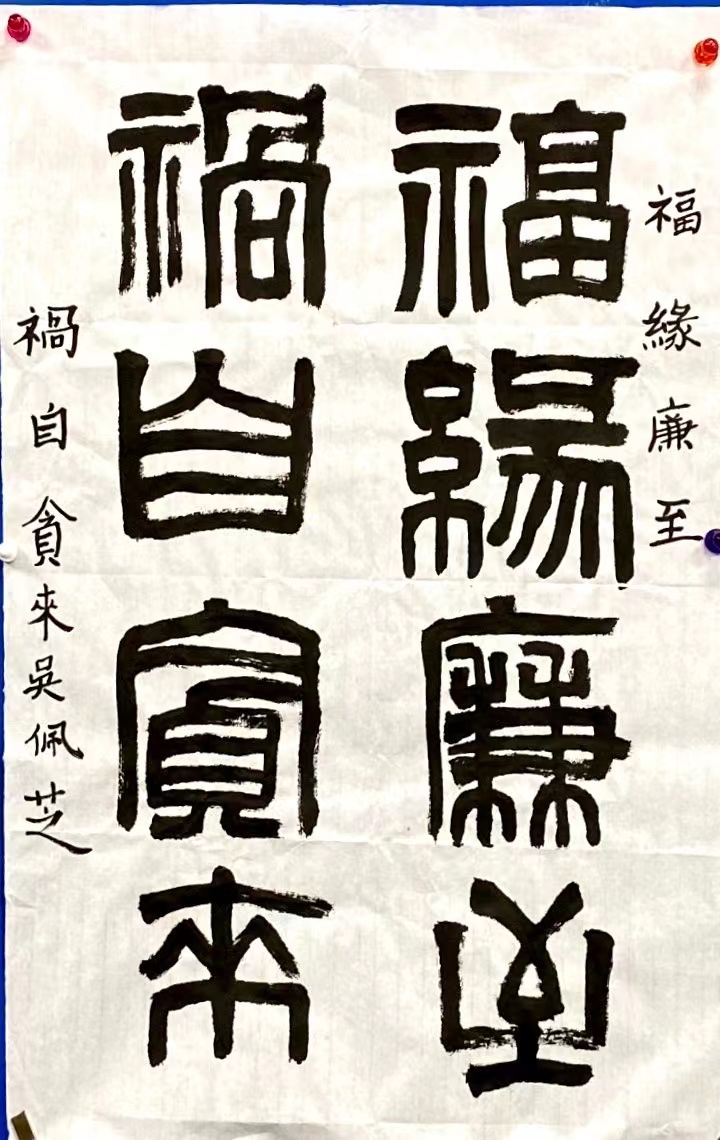 福緣廉至
福緣廉至
禍自貪來
禍自貪來吳佩芝